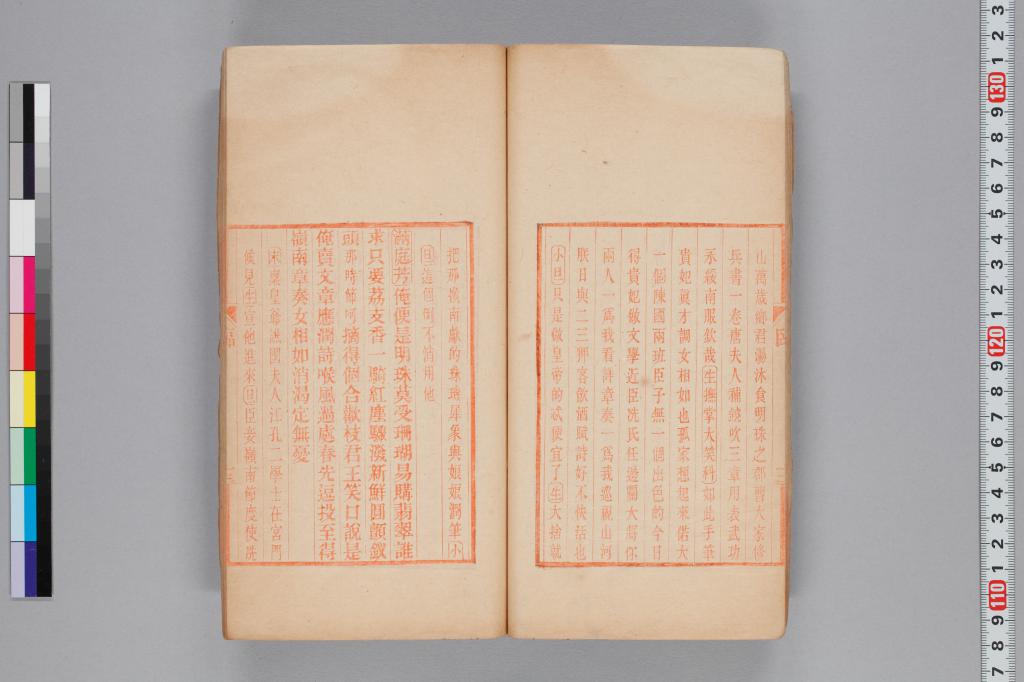 山萬歲癤君湯沐食明珠之郡曹大家修
兵書一卷唐夫人補鐃吹三章用表武功
永綏南服欽哉生撫掌大笑科如此手筆
貴妃眞才調女相如也孤家想起來偌大
一個陳國兩班臣子無一個出色的今日
得貴妃做文學近臣冼氏任邊關大將你
兩人一爲我看詳章奏一爲我巡視山河
朕日與二三狎客飲酒賦詩好不快活也
小旦只是做皇帝的忒便宜了生大捨就
把那嶺南獻的珠璣犀象與娘娘潤筆小
旦這個倒不消用他
滿庭芳俺便是明珠莫受珊瑚易購翡翠誰
求只要荔支香一騎紅塵驟潑新鮮圓顫釵
頭那時節呵摘得個合歡枝君王笑口說是
俺賣文章應潤詩喉風過處春先逗投至得
嶺南章奏女相如消渴定無憂
末稟皇爺譙國夫人江孔二學士在宮門
候見生宣他進來旦臣妾嶺南節度使冼